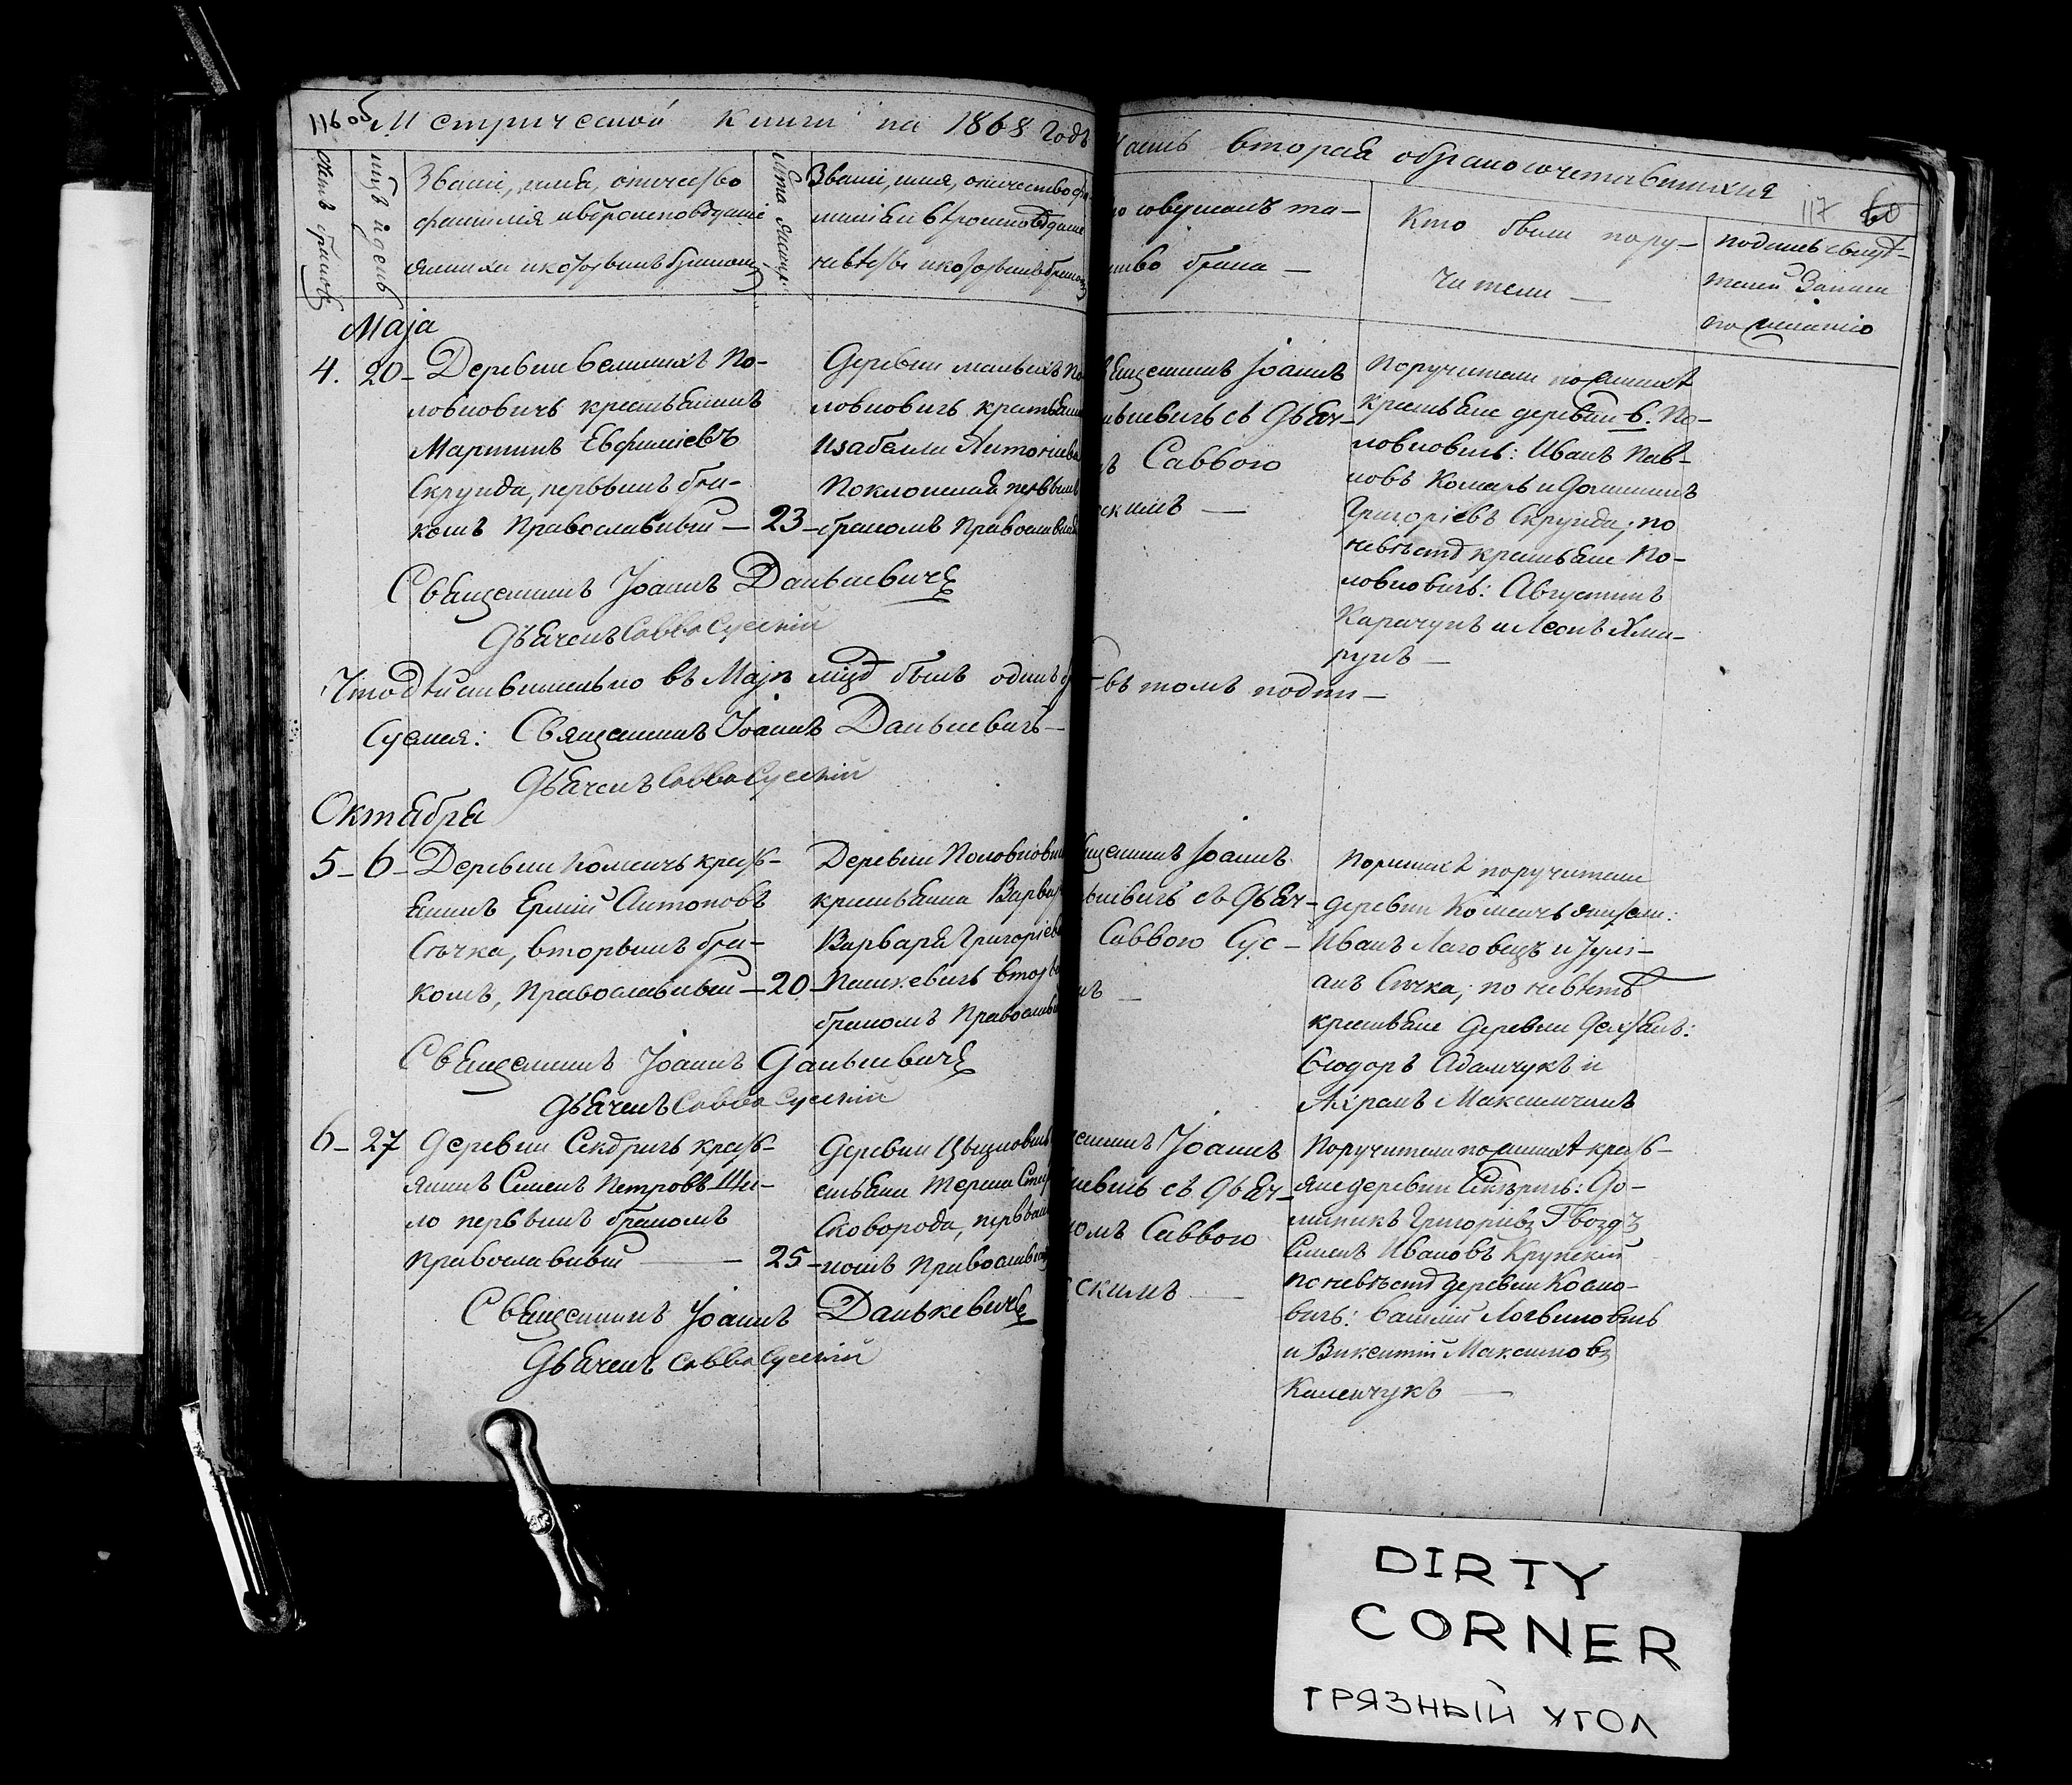 116 об
Метрической книги на 1868 годъ
Часть вторая о бракосочетавшихся
117
60
Счетъ браковъ
Мцъ и день
Званіе, имя, отчество
фамилія и вѣроисповѣданіе
жениха и которымъ бракомъ
Лѣта жениха
Званіе, имя, отчество фа
милія и вѣроисповѣданіе
невѣсты и которымъ бракомъ
то совершалъ та-
инство брака —
Кто были пору-
чители —
Подпись свидѣ-
телей записи
по желанію
Маja
4. 20 – Деревни Великихъ По-
ловковичъ крестьянинъ
Мартинъ Евфиміевъ
Скрунда, первымъ бра-
комъ Православный — 23 –
Деревни малыхъ По
ловковичъ крестьян
Изабелла Антоніева
Поклонская первымъ
бракомъ Православна
Священникъ Іоаннъ
нькевичъ съ Дьяч-
ъ Саввою
скимъ —
Поручители по женихѣ
крестьяне деревни В. По-
ловковичъ: Иванъ Пав-
ловъ Комаръ и Доминикъ
Григоріевъ Скрунда; по
невѣстѣ крестьяне По-
ловковичъ: Августинъ
Карачунъ и Леонъ Хма-
рукъ —
Священникъ Іоаннъ Данькевичъ
Дьячекъ Савва Сускій
Что дѣйствительно въ Маjѣ мцѣ былъ одинъ
въ томъ подпи-
суемся: Священникъ Іоаннъ Данькевичъ —
Дьячекъ Савва Сускій
Октября
5 – 6 – Деревни крест-
янинъ Антоновъ
Сѣчка, вторымъ бра-
комъ, Православный — 20 –
Деревни Половковичъ
крестьянка Варвар
Варвара Григоріева
Пашкевичъ втор
бракомъ Православ
щенникъ Іоаннъ
ькевичъ съ Дьяч-
Саввою Сус-
мъ —
По женихѣ поручители
деревни жители:
Иванъ Лаговецъ и Јулі-
анъ Сѣчка; по невѣстѣ
крестьяне деревни
Ѳеодоръ Адамчукъ и
Максимчикъ
Священникъ Іоаннъ Данькевичъ
Дьячекъ Савва Сускій
6 – 27 Деревни Сендричъ крест-
янинъ Семенъ Петровъ Ши-
ло первымъ бракомъ
Православный — 25 –
Деревни
Сковорода, первымъ
комъ Православна
енникъ Іоаннъ
кевичъ съ Дьяч-
комъ Саввою
скимъ —
Поручители по женихѣ крест-
яне деревни Сендричъ: До-
миникъ Григоріевъ Гвоздь
Семенъ Ивановъ Крупскій
по невѣстѣ деревни Косно-
вичъ: Василій Логвиновичъ
и Викентій Максимовъ
Каленчукъ —
Священникъ Іоаннъ Данькевичъ
Дьячекъ Савва Сускій
DIRTY
CORNER
ГРЯЗНЫЙ УГОЛ